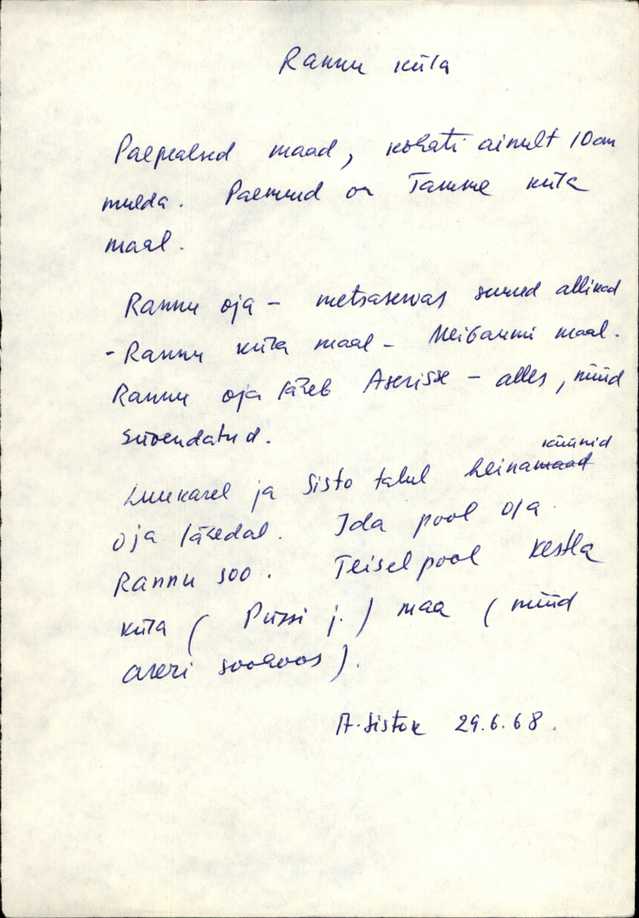 Rannu küla
Paepealsed maad, kohati ainult 10 cm
mulda. Paemurd on Tamme küla
maal.
Rannu oja – metsaservas suured allikad
- Rannu küla maal – Neibaumi maal.
Rannu oja läheb Aserisse – alles, nüüd
süvendatud.
küünid
Luukarel ja Sisto talul heinamaad
oja lähedal. Ida pool oja
Rannu soo. Teiselpool Kestla
küla (Püssi j.) maa (nüüd
Aseri soohoos).
A. Sistok 29.6.68.